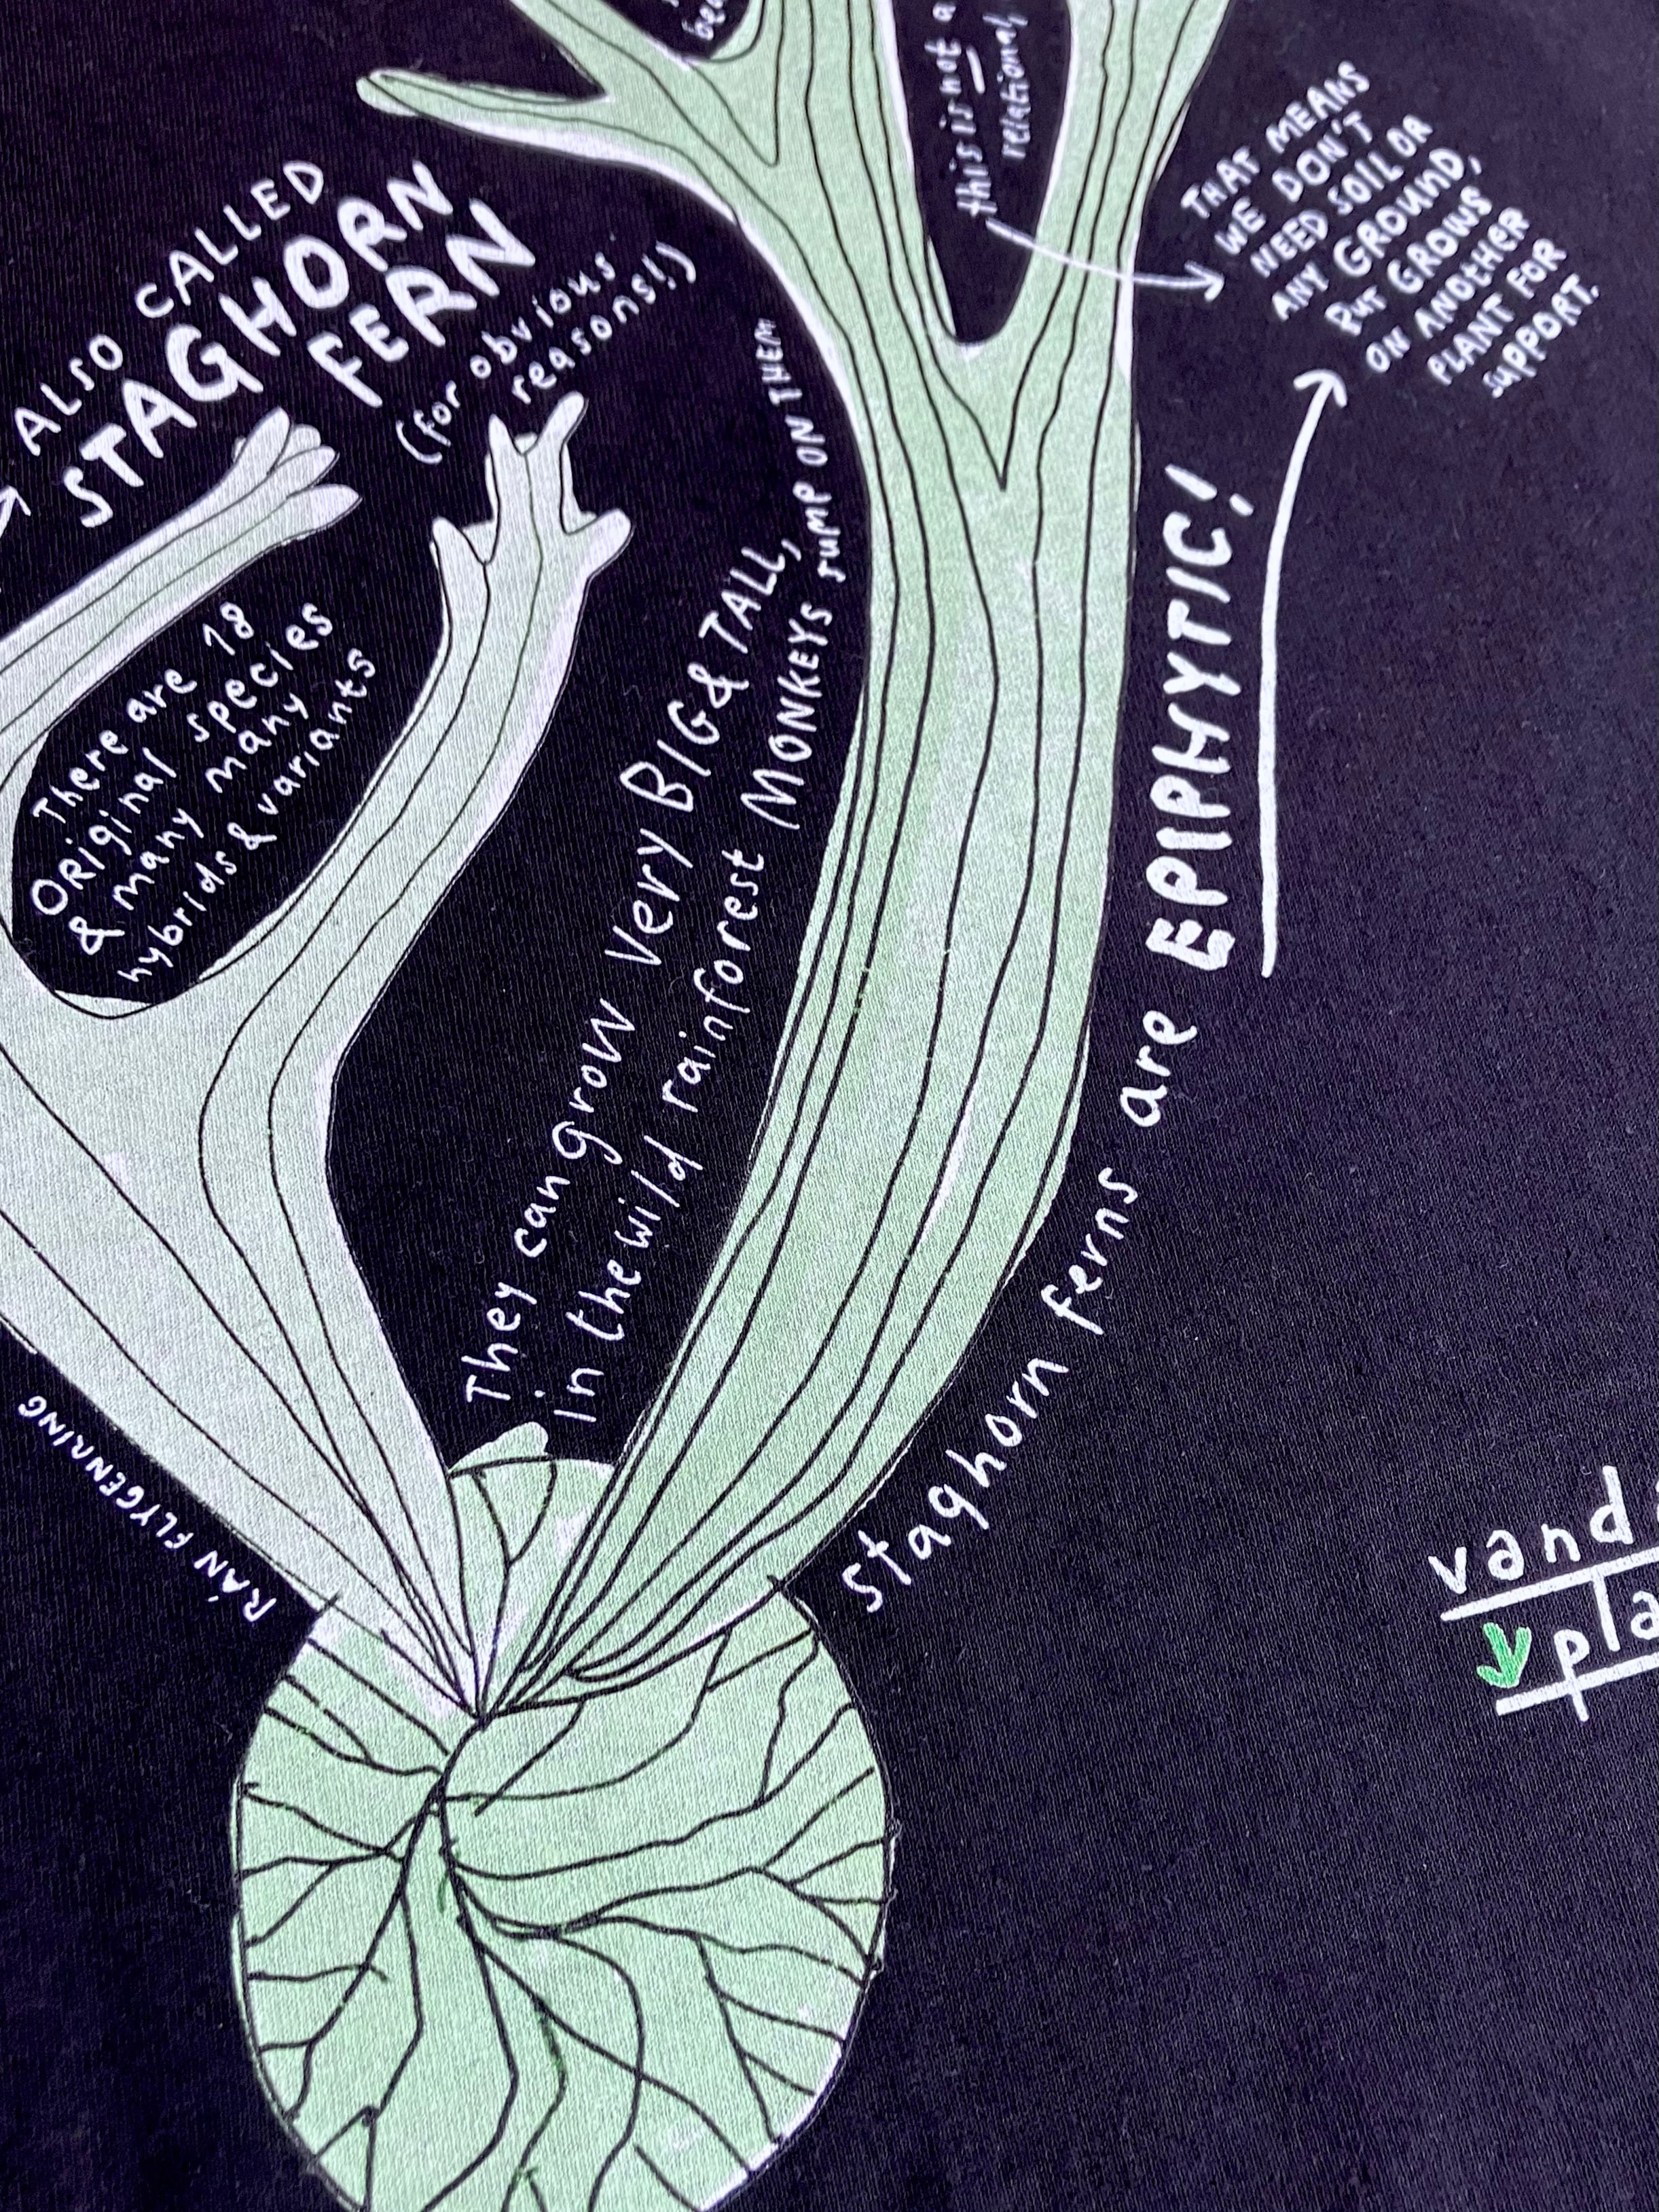 this is not a
relational
THAT MEANS
WE DON'T
NEED SOIL OR
ANY GROUND,
BUT GROWS
ON ANOTHER
PLANT FOR
SUPPORT.
ALSO CALLED
STAGHORN
FERN
(for obvious
reasons!)
There are 18
ORiginal species
& many many
hybrids & variants
They can grow very BIG & TALL,
in the wild rainforest MONKEYS JUMP ON THEM
staghorn ferns are EPIPHYTIC!
RÁN FLYGENRING